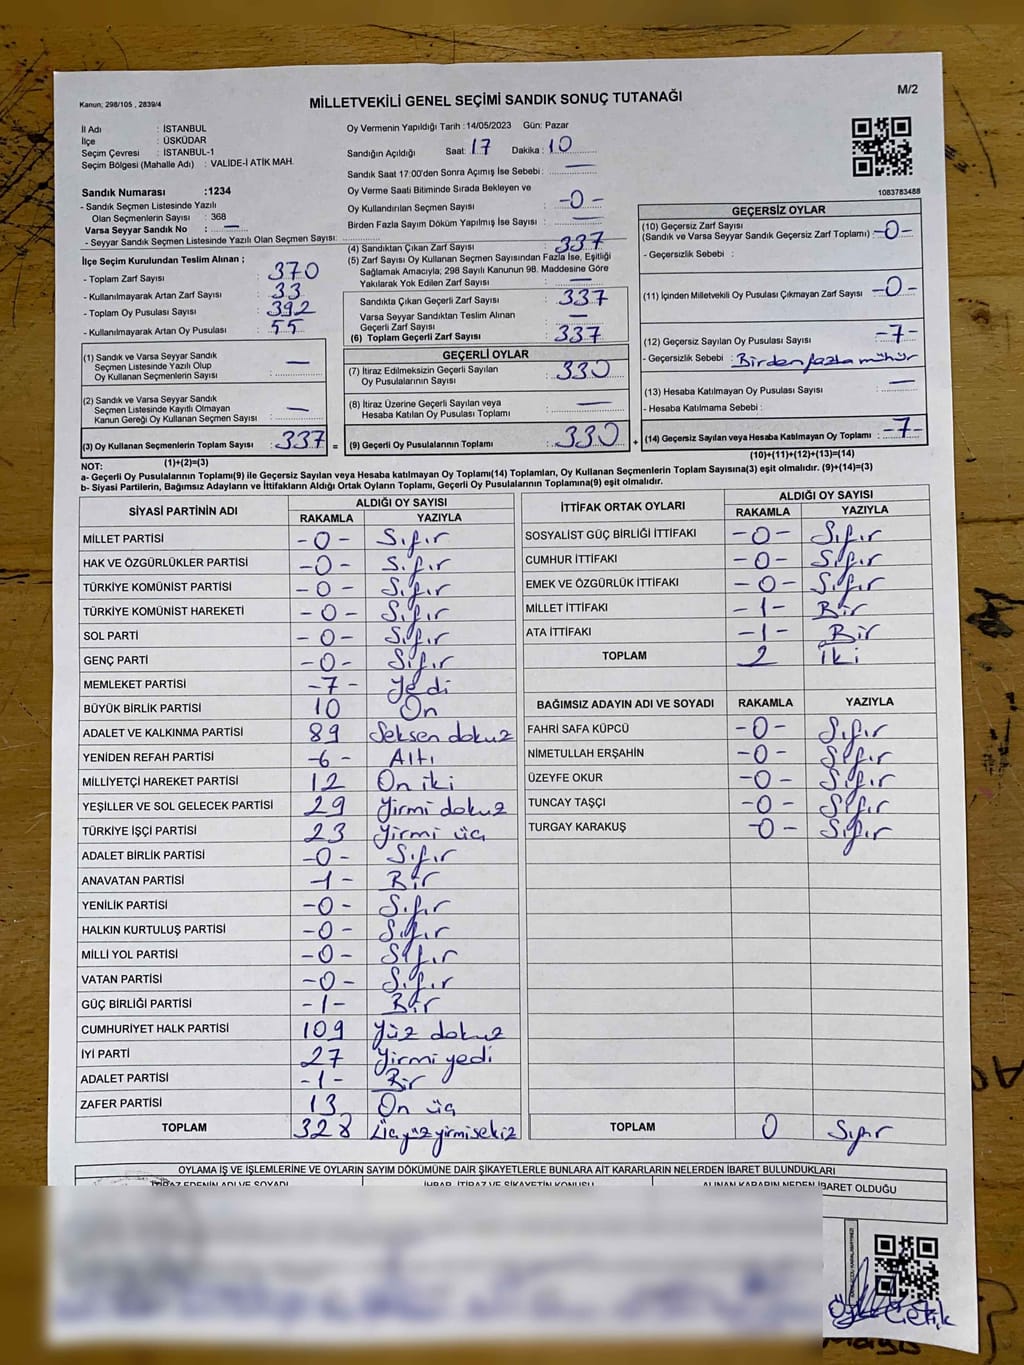 Kanun; 298/105 , 2839/4
MİLLETVEKİLİ GENEL SEÇİMİ SANDIK SONUÇ TUTANAĞI
M/2
İl Adı : İSTANBUL
İlçe : ÜSKÜDAR
Seçim Çevresi : İSTANBUL-1
Seçim Bölgesi (Mahalle Adı) : VALİDE-İ ATİK MAH.
Sandık Numarası :1234
- Sandık Seçmen Listesinde Yazılı
Olan Seçmenlerin Sayısı : 368
Varsa Seyyar Sandık No : —
- Seyyar Sandık Seçmen Listesinde Yazılı Olan Seçmen Sayısı:
İlçe Seçim Kurulundan Teslim Alınan ;
- Toplam Zarf Sayısı : 370
- Kullanılmayarak Artan Zarf Sayısı : 33
- Toplam Oy Pusulası Sayısı : 392
- Kullanılmayarak Artan Oy Pusulası : 55
(1) Sandık ve Varsa Seyyar Sandık
Seçmen Listesinde Yazılı Olup
Oy Kullanan Seçmenlerin Sayısı : —
(2) Sandık ve Varsa Seyyar Sandık
Seçmen Listesinde Kayıtlı Olmayan
Kanun Gereği Oy Kullanan Seçmen Sayısı : —
(3) Oy Kullanan Seçmenlerin Toplam Sayısı : 337
(1)+(2)=(3)
Oy Vermenin Yapıldığı Tarih :14/05/2023 Gün: Pazar
Sandığın Açıldığı Saat: 17 Dakika : 10
Sandık Saat 17:00'den Sonra Açımış İse Sebebi : —
Oy Verme Saati Bitiminde Sırada Bekleyen ve
Oy Kullandırılan Seçmen Sayısı : -0-
Birden Fazla Sayım Döküm Yapılmış İse Sayısı : —
(4) Sandıktan Çıkan Zarf Sayısı : 337
(5) Zarf Sayısı Oy Kullanan Seçmen Sayısından Fazla İse, Eşitliği
Sağlamak Amacıyla; 298 Sayılı Kanunun 98. Maddesine Göre
Yakılarak Yok Edilen Zarf Sayısı : —
Sandıkta Çıkan Geçerli Zarf Sayısı : 337
Varsa Seyyar Sandıktan Teslim Alınan
Geçerli Zarf Sayısı : —
(6) Toplam Geçerli Zarf Sayısı : 337
GEÇERLİ OYLAR
(7) İtiraz Edilmeksizin Geçerli Sayılan
Oy Pusulalarının Sayısı : 330
(8) İtiraz Üzerine Geçerli Sayılan veya
Hesaba Katılan Oy Pusulası Toplamı : —
= (9) Geçerli Oy Pusulalarının Toplamı : 330 +
1083783488
GEÇERSİZ OYLAR
(10) Geçersiz Zarf Sayısı
(Sandık ve Varsa Seyyar Sandık Geçersiz Zarf Toplamı) : -0-
- Geçersizlik Sebebi :
(11) İçinden Milletvekili Oy Pusulası Çıkmayan Zarf Sayısı : -0-
(12) Geçersiz Sayılan Oy Pusulası Sayısı : -7-
- Geçersizlik Sebebi : Birden fazla mühür
(13) Hesaba Katılmayan Oy Pusulası Sayısı : —
- Hesaba Katılmama Sebebi :
(14) Geçersiz Sayılan veya Hesaba Katılmayan Oy Toplamı : -7-
(10)+(11)+(12)+(13)=(14)
NOT:
a- Geçerli Oy Pusulalarının Toplamı(9) ile Geçersiz Sayılan veya Hesaba katılmayan Oy Toplamı(14) Toplamları, Oy Kullanan Seçmenlerin Toplam Sayısına(3) eşit olmalıdır. (9)+(14)=(3)
b- Siyasi Partilerin, Bağımsız Adayların ve İttifakların Aldığı Ortak Oyların Toplamı, Geçerli Oy Pusulalarının Toplamına(9) eşit olmalıdır.
SİYASİ PARTİNİN ADI ALDIĞI OY SAYISI
RAKAMLA YAZIYLA
MİLLET PARTİSİ -0- Sıfır
HAK VE ÖZGÜRLÜKLER PARTİSİ -0- Sıfır
TÜRKİYE KOMÜNİST PARTİSİ -0- Sıfır
TÜRKİYE KOMÜNİST HAREKETİ -0- Sıfır
SOL PARTİ -0- Sıfır
GENÇ PARTİ -0- Sıfır
MEMLEKET PARTİSİ -7- Yedi
BÜYÜK BİRLİK PARTİSİ 10 On
ADALET VE KALKINMA PARTİSİ 89 Seksen dokuz
YENİDEN REFAH PARTİSİ -6- Altı
MİLLİYETÇİ HAREKET PARTİSİ 12 On iki
YEŞİLLER VE SOL GELECEK PARTİSİ 29 Yirmi dokuz
TÜRKİYE İŞÇİ PARTİSİ 23 Yirmi üç
ADALET BİRLİK PARTİSİ -0- Sıfır
ANAVATAN PARTİSİ -1- Bir
YENİLİK PARTİSİ -0- Sıfır
HALKIN KURTULUŞ PARTİSİ -0- Sıfır
MİLLİ YOL PARTİSİ -0- Sıfır
VATAN PARTİSİ -0- Sıfır
GÜÇ BİRLİĞİ PARTİSİ -1- Bir
CUMHURİYET HALK PARTİSİ 109 Yüz dokuz
İYİ PARTİ 27 Yirmi yedi
ADALET PARTİSİ -1- Bir
ZAFER PARTİSİ 13 On üç
TOPLAM 328 Üçyüz yirmisekiz
İTTİFAK ORTAK OYLARI ALDIĞI OY SAYISI
RAKAMLA YAZIYLA
SOSYALİST GÜÇ BİRLİĞİ İTTİFAKI -0- Sıfır
CUMHUR İTTİFAKI -0- Sıfır
EMEK VE ÖZGÜRLÜK İTTİFAKI -0- Sıfır
MİLLET İTTİFAKI -1- Bir
ATA İTTİFAKI -1- Bir
TOPLAM 2 İki
BAĞIMSIZ ADAYIN ADI VE SOYADI RAKAMLA YAZIYLA
FAHRİ SAFA KÜPCÜ -0- Sıfır
NİMETULLAH ERŞAHİN -0- Sıfır
ÜZEYFE OKUR -0- Sıfır
TUNCAY TAŞÇI -0- Sıfır
TURGAY KARAKUŞ -0- Sıfır
TOPLAM 0 Sıfır
OYLAMA İŞ VE İŞLEMLERİNE VE OYLARIN SAYIM DÖKÜMÜNE DAİR ŞİKAYETLERLE BUNLARA AİT KARARLARIN NELERDEN İBARET BULUNDUKLARI
İTİRAZ EDENİN ADI VE SOYADI İHBAR, İTİRAZ VE ŞİKAYETİN KONUSU ALINAN KARARIN NEDEN İBARET OLDUĞU